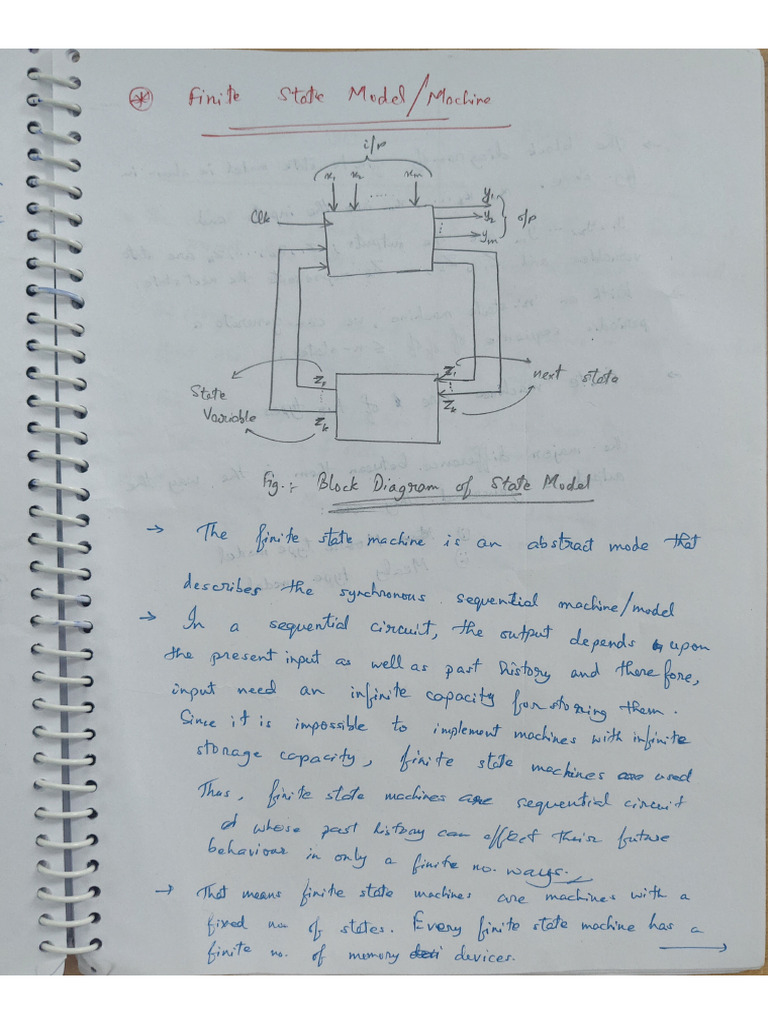 * Finite State Model/Machine
i/p
x1 x2 ..... xm
Clk
y1
y2
ym
o/p
Z1
Zk
State
Variable
Z1
Zk
next state
Fig.: Block Diagram of State Model
→ The finite state machine is an abstract mode that
describes the synchronous sequential machine/model
→ In a sequential circuit, the output depends upon
the present input as well as past history and therefore,
input need an infinite capacity for storing them.
Since it is impossible to implement machines with infinite
storage capacity, finite state machines are used
Thus, finite state machines are sequential circuit
whose past history can affect their future
behaviour in only a finite no. ways.
→ That means finite state machines are machines with a
fixed no. of states. Every finite state machine has a
finite no. of memory devices.